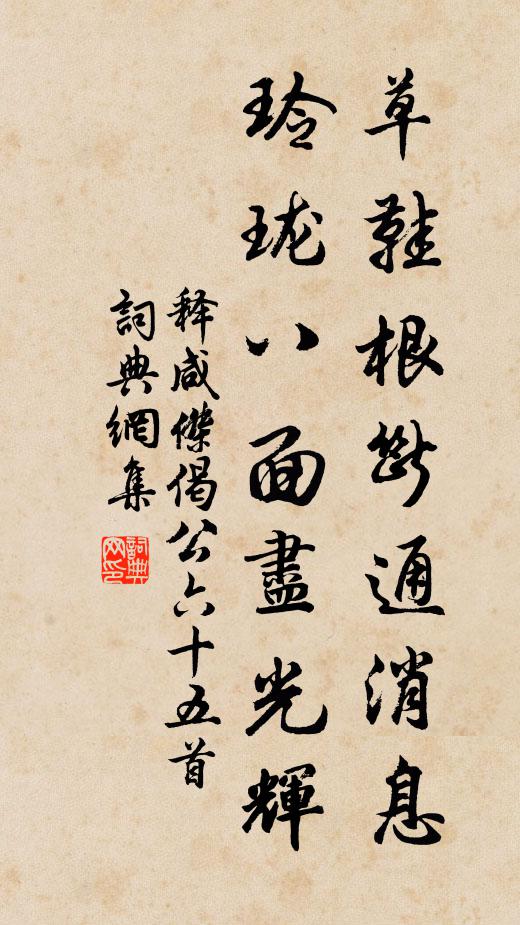 草鞋根斷通消息
玲瓏八面盡光輝
释咸傑偈公六十五首
詞典網集
詞典网印